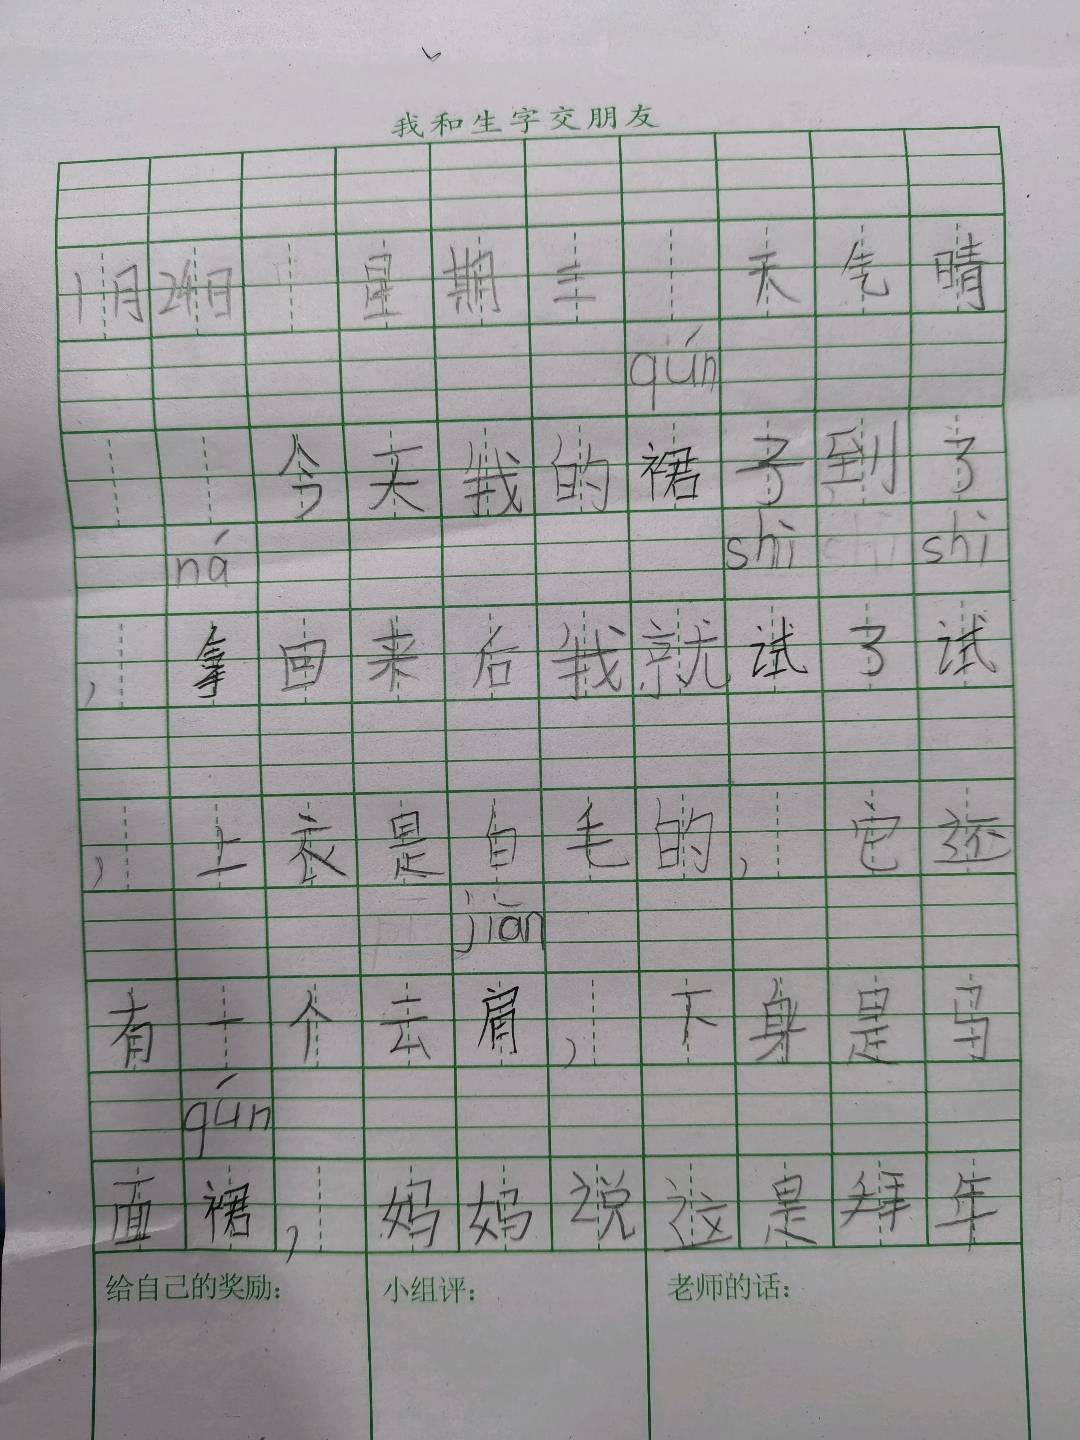 我和生字交朋友
1月24日 星期三 天气晴
qún
今天我的裙子到了
ná shì shi shì
，拿回来后我就试了试
，上衣是白毛的，它还
jiān
有一个云肩，下身是马
qún
面裙，妈妈说这是拜年
给自己的奖励： 小组评： 老师的话：